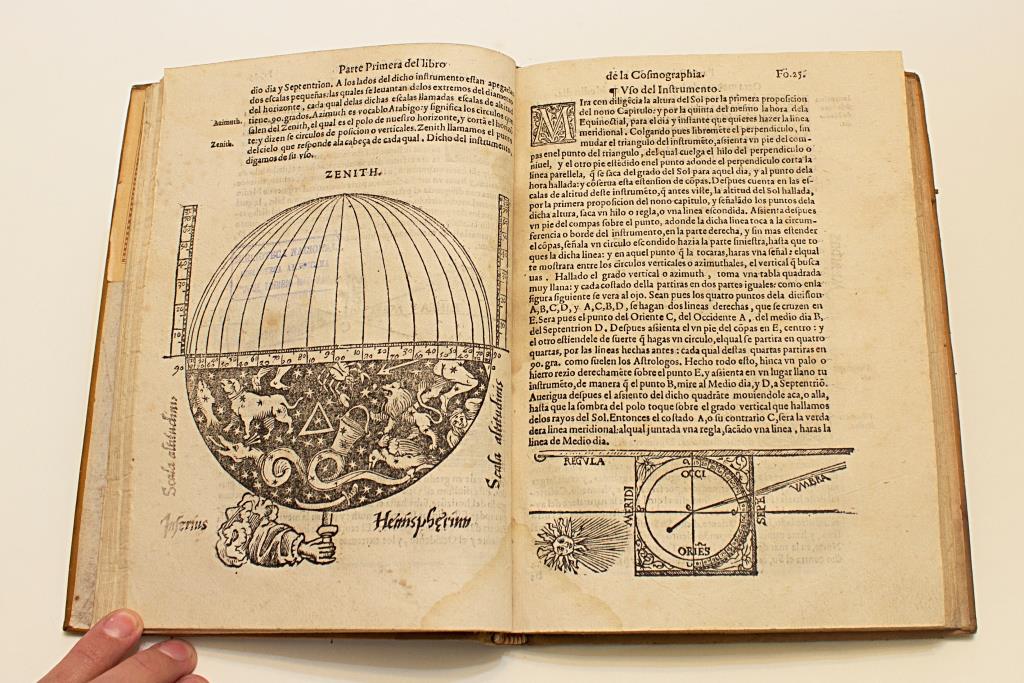 Parte Primera del libro
dio dia y Septentrion. A los lados del dicho instrumento estan apegadas
dos escalas pequeñas: las quales se leuantan delos extremos del diametro
del horizonte, cada qual delas dichas escalas llamadas escalas de altitud
Azimuth.
tiene. 90. grados. Azimuth es vocablo Arabigo: y significa los circulos que
salen del Zenith, el qual es el polo de nuestro horizonte, y cortã el horizon
Zenith.
te: y dizen se circulos de posicion o verticales. Zenith llamamos el punto
del cielo que responde ala cabeça de cada qual. Dicho del instrumento,
digamos de su vso.
ZENITH.
Scala altitudinis
Scala altitudinis
Inferius
Hemispherium
de la Cosmographia.
Fo.25.
¶ Vso del Instrumento.
MIra con diligẽcia la altura del Sol por la primera proposicion
del nono Capitulo: y por la quinta del mesmo la hora dela
Equinoctial, para el dia y instante que quieres hazer la linea
meridional. Colgando pues libremẽte el perpendiculo, sin
mudar el triangulo del instrumẽto, assienta vn pie del com-
pas enel punto del triangulo, del qual cuelga el hilo del perpendiculo o
niuel, y el otro pie estẽdido enel punto adonde el perpendiculo corta la
linea parellela, q̃ se saca del grado del Sol para aquel dia, y al punto dela
hora hallada: y cõserua esta estension de cõpas. Despues cuenta en las es-
calas de altitud deste instrumẽto, q̃ antes viste, la altitud del Sol hallada,
por la primera proposicion del nono capitulo, y señalãdo los puntos dela
dicha altura, saca vn hilo o regla, o vna linea escondida. Assienta despues
vn pie del compas sobre el punto, adonde la dicha linea toca a la circum-
ferencia o borde del instrumento, en la parte derecha, y sin mas estender
el cõpas, señala vn circulo escondido hazia la parte siniestra, hasta que to-
ques la dicha linea: y en aquel punto q̃ la tocaras, haras vna señal: el qual
te mostrara entre los circulos verticales o azimuthales, el vertical q̃ busca
uas. Hallado el grado vertical o azimuth, toma vna tabla quadrada
muy llana: y cada costado della partiras en dos partes iguales: como enla
figura siguiente se vera al ojo. Sean pues los quatro puntos dela diuision
A, B, C, D, y A, C, B, D, se hagan dos lineas derechas, que se cruzen en
E. Sera pues el punto del Oriente C, del Occidente A, del medio dia B,
del Septentrion D. Despues assienta el vn pie del cõpas en E, centro: y
el otro estiendele de suerte q̃ hagas vn circulo, el qual se partira en quatro
quartas, por las lineas hechas antes: cada qual destas quartas partiras en
90. gra. como suelen los Astrologos. Hecho todo esto, hinca vn palo o
hierro rezio derechamẽte sobre el punto E, y assienta en vn lugar llano tu
instrumẽto, de manera q̃ el punto B, mire al Medio dia, y D, a Septentriõ.
Auerigua despues el assiento del dicho quadrãte mouiendole aca, o alla,
hasta que la sombra del polo toque sobre el grado vertical que hallamos
delos rayos del Sol. Entonces el costado A, o su contrario C, sera la verda
dera linea meridional: al qual juntada vna regla, sacãdo vna linea, haras la
linea de Medio dia.
REGVLA
OCCI
MERIDI
SEPE
VMBRA
ORIẼS